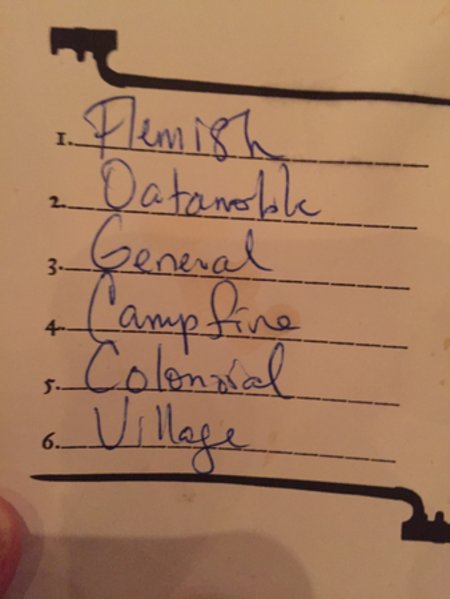 1. Flemish
2. Datamobile
3. General
4. Campfire
5. Colonial
6. Village